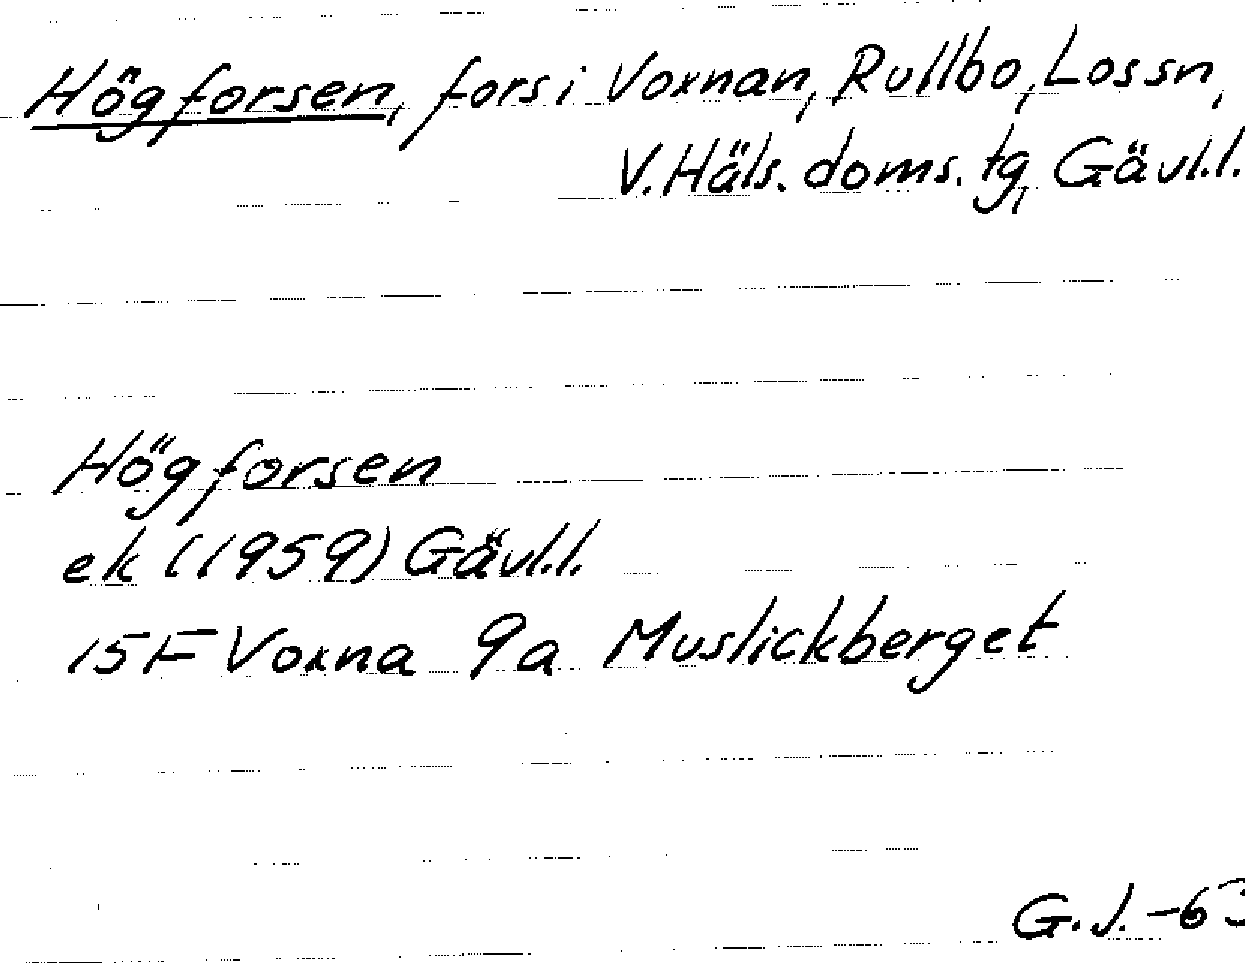 Högforsen, fors i Voxnan, Rullbo, Los sn,
V. Häls. doms. tg, Gävl.l.
Högforsen
ek (1959) Gävl.l.
15F Voxna 9a Muslickberget
G.J. -63